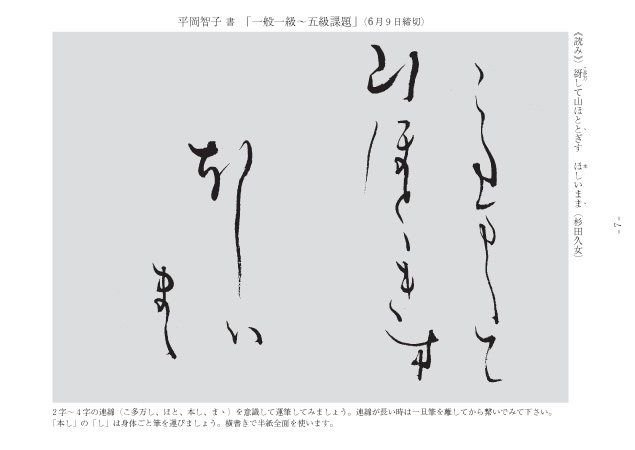 平岡智子 書 「一般一級～五級課題」（6月9日締切）
《読み》谺して山ほととぎす ほしいまま（杉田久女）
こ多万して
山ほとゝきす
本しい
まゝ
2字～4字の連綿（こ多万し、ほと、本し、まゝ）を意識して運筆してみましょう。連綿が長い時は一旦筆を離してから繋いでみて下さい。
「本し」の「し」は身体ごと筆を運びましょう。横書きで半紙全面を使います。
- 7 -